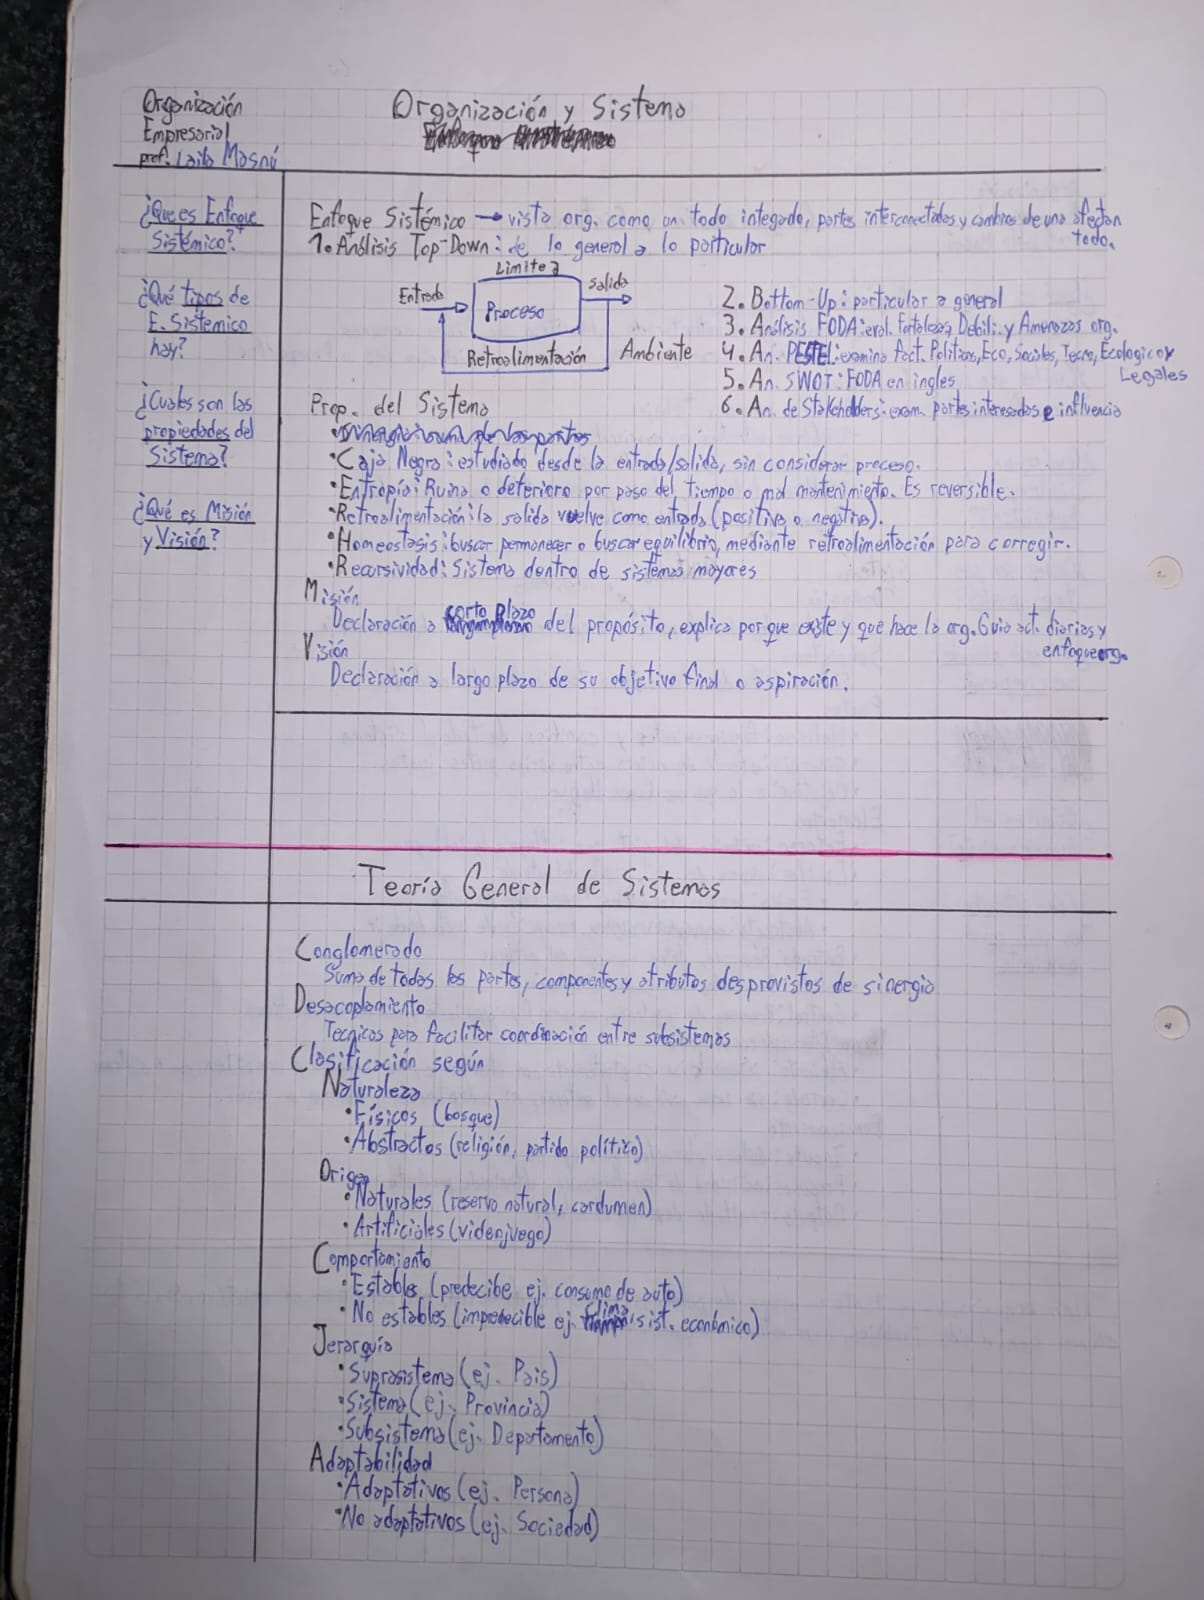 Organización
Empresarial
prof. Laila Masnú
Organización y Sistema
¿Que es Enfoque
Sistémico?
¿Qué tipos de
E. Sistemico
hay?
¿Cuales son las
propiedades del
Sistema?
¿Qué es Misión
y Visión?
Enfoque Sistémico → vista org. como un todo integado, partes interconectadas y cambios de una afectan
todo.
1. Análisis Top-Down: de lo general a lo particular
Limites
Entrada
Proceso
Salida
Retroalimentación
Ambiente
2. Bottom-Up: particular a general
3. Análisis FODA: eval. Fortalezas, Debili. y Amenazas org.
4. An. PESTEL: examina fact. Politicos, Eco, Sociales, Tecno, Ecologico y
Legales
5. An. SWOT: FODA en ingles
6. An. de Stakeholders: exam. partes interesadas e influencia
Prop. del Sistema
• Caja Negra: estudiado desde la entrada/salida, sin considerar proceso.
• Entropía: Ruina o deterioro por paso del tiempo o mal mantenimiento. Es reversible.
• Retroalimentación: la salida vuelve como entrada (positiva o negativa).
• Homeostasis: buscar permanecer o buscar equilibrio, mediante retroalimentación para corregir.
• Recursividad: Sistema dentro de sistemas mayores
Misión
Declaración a corto plazo del propósito, explica por que existe y que hace la org. Guia act. diarias y
enfoque org.
Visión
Declaración a largo plazo de su objetivo final o aspiración.
Teoría General de Sistemas
Conglomerado
Suma de todas las partes, componentes y atributos desprovistos de sinergia
Desacoplamiento
Tecnicas para facilitar coordinación entre subsistemas
Clasificación según
Naturaleza
• Físicos (bosque)
• Abstractos (religión, partido político)
Origen
• Naturales (reserva natural, cardumen)
• Artificiales (videojuego)
Comportamiento
• Estables (predecibe ej. consumo de auto)
• No estables (impredecible ej. clima, sist. económico)
Jerarquía
• Suprasistema (ej. Pais)
• Sistema (ej. Provincia)
• Subsistema (ej. Departamento)
Adaptabilidad
• Adaptativos (ej. Persona)
• No adaptativos (ej. Sociedad)